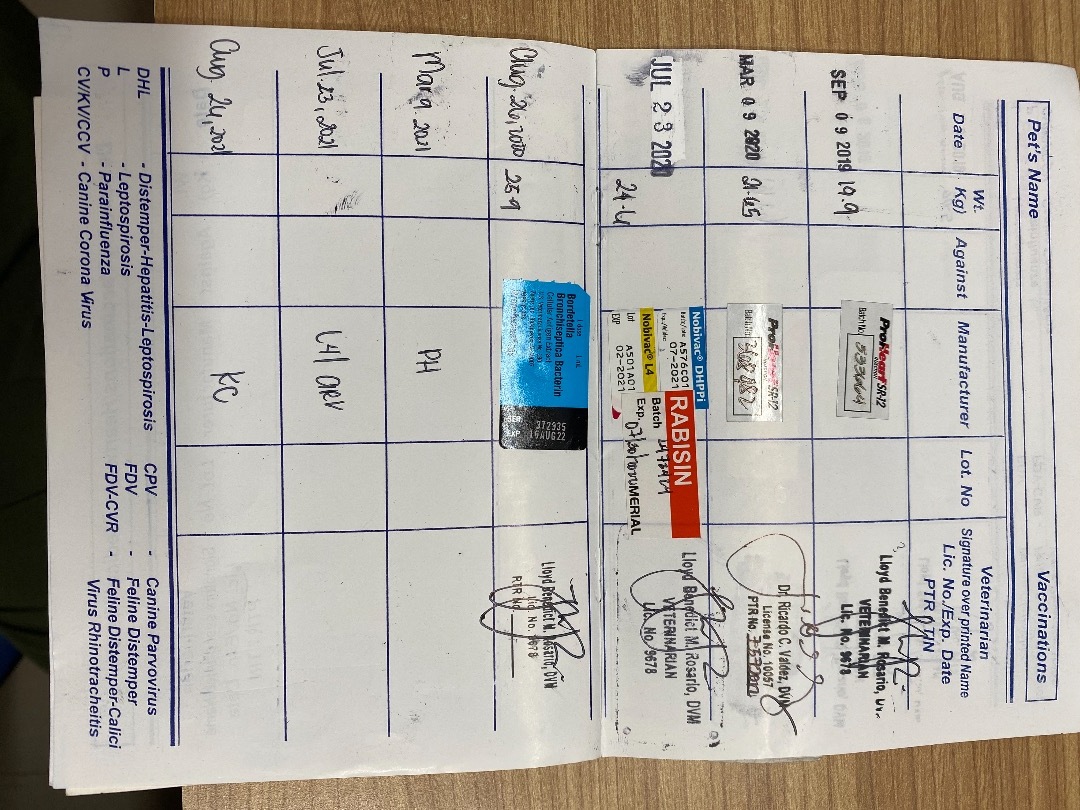 Pet's Name
Vaccinations
Date
Wt.
Kg)
Against
Manufacturer
Lot. No
Veterinarian
Signature over printed Name
Lic. No./Exp. Date
PTR / TIN
SEP 09 2019
19.9
ProHeart SR-12
Batch No
Lloyd Benedict M. Rosario,
VETERINARIAN
Lic. No. 9678
MAR 09 2020
21.45
SR-12
Batch No
Dr. Ricardo C. Valdez, DVM
License No. 10057
PTR No.
JUL 23 2020
24.4
Nobivac® DHPPi
A576C01
07-2021
Nobivac® L4
Lot
A501A01
EXP
02-2021
RABISIN
Batch
Exp.
MERIAL
Lloyd Benedict M. Rosario, DVM
VETERINARIAN
Lic. No. 9678
Aug. 26, 2020
25.9
Bordetella
Bronchiseptica Bacterin
372935
16AUG22
Lloyd Benedict M. Rosario, DVM
Lic. No. 9678
PTR No.
Mar. 9. 2021
PH
Jul. 23, 2021
L4/ ARV
Aug. 24, 2021
KC
DHL - Distemper-Hepatitis-Leptospirosis
L - Leptospirosis
P - Parainfluenza
CV/KV/CCV - Canine Corona Virus
CPV - Canine Parvovirus
FDV - Feline Distemper
FDV-CVR - Feline Distemper-Calici
Virus Rhinotracheitis